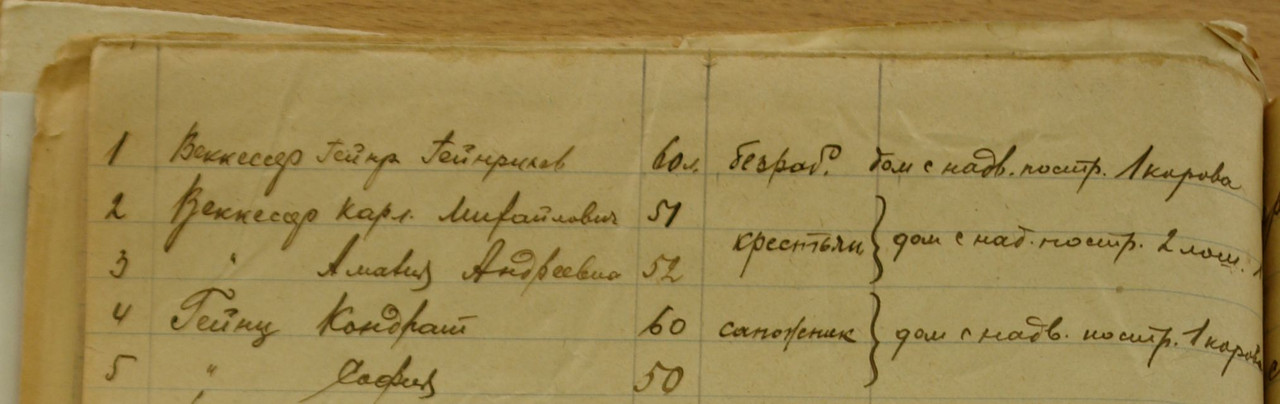 1 Веккессер Гейнр Гейнрихов 60 л. безраб. дом с надв. постр. 1 корова
2 Веккессер Карл. Михайлович 51
крестьян } дом с над. постр. 2 лош.
3 " Амалия Андреевна 52
4 Гейнц Кондрат 60 сапожник } дом с надв. постр. 1 корова
5 " София 50